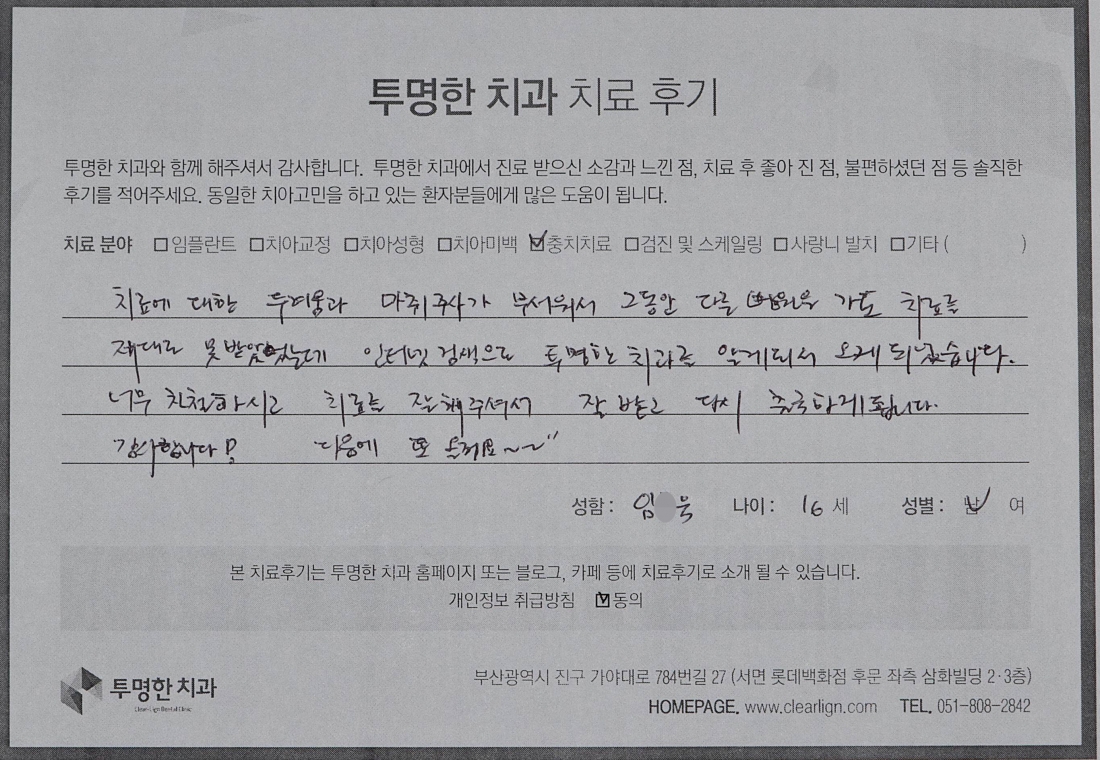 투명한 치과 치료 후기
투명한 치과와 함께 해주셔서 감사합니다. 투명한 치과에서 진료 받으신 소감과 느낀 점, 치료 후 좋아 진 점, 불편하셨던 점 등 솔직한
후기를 적어주세요. 동일한 치아고민을 하고 있는 환자분들에게 많은 도움이 됩니다.
치료 분야 □임플란트 □치아교정 □치아성형 □치아미백 ☑충치치료 □검진 및 스케일링 □사랑니 발치 □기타 ( )
치료에 대한 두려움과 마취주사가 무서워서 그동안 다른 병원을 가도 치료를
제대로 못받았었는데 인터넷 검색으로 투명한 치과를 알게되서 오게 되었습니다.
너무 친절하시고 치료를 잘해주셔서 잘 받고 다시 출국하게됩니다.
감사합니다! 다음에 또 올게요~~"
성함 : 임 욱 나이 : 16 세 성별 : 남 여
본 치료후기는 투명한 치과 홈페이지 또는 블로그, 카페 등에 치료후기로 소개 될 수 있습니다.
개인정보 취급방침 ☑동의
투명한 치과
Clear-Lign Dental Clinic
부산광역시 진구 가야대로 784번길 27 (서면 롯데백화점 후문 좌측 삼화빌딩 2·3층)
HOMEPAGE. www.clearlign.com TEL. 051-808-2842